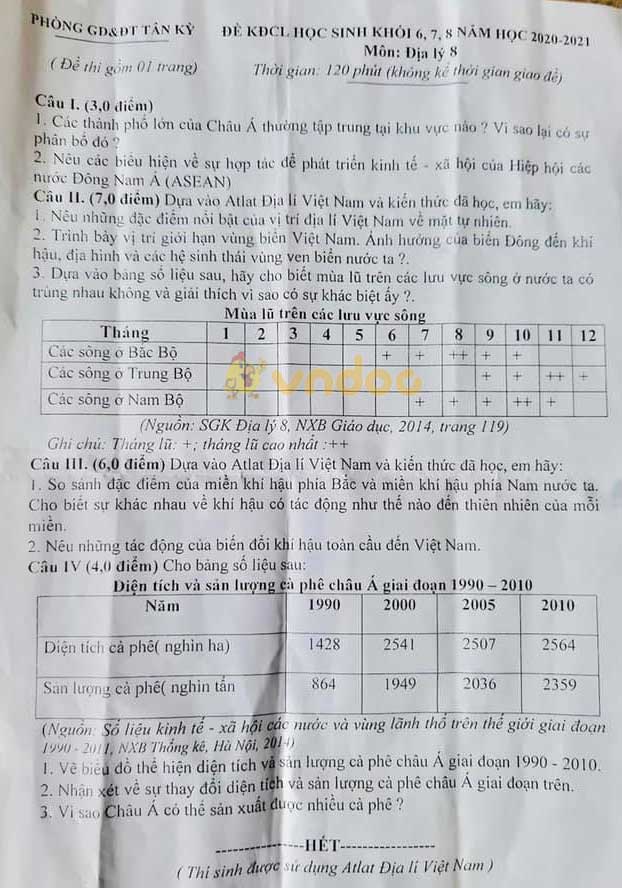 PHÒNG GD&ĐT TÂN KỲ
ĐỀ KĐCL HỌC SINH KHỐI 6, 7, 8 NĂM HỌC 2020-2021
Môn: Địa lý 8
( Đề thi gồm 01 trang)
Thời gian: 120 phút (không kể thời gian giao đề)
Câu I. (3,0 điểm)
1. Các thành phố lớn của Châu Á thường tập trung tại khu vực nào ? Vì sao lại có sự
phân bố đó ?
2. Nêu các biểu hiện về sự hợp tác để phát triển kinh tế - xã hội của Hiệp hội các
nước Đông Nam Á (ASEAN)
Câu II. (7,0 điểm) Dựa vào Atlat Địa lí Việt Nam và kiến thức đã học, em hãy:
1. Nêu những đặc điểm nổi bật của vị trí địa lí Việt Nam về mặt tự nhiên.
2. Trình bày vị trí giới hạn vùng biển Việt Nam. Ảnh hưởng của biển Đông đến khí
hậu, địa hình và các hệ sinh thái vùng ven biển nước ta ?.
3. Dựa vào bảng số liệu sau, hãy cho biết mùa lũ trên các lưu vực sông ở nước ta có
trùng nhau không và giải thích vì sao có sự khác biệt ấy ?.
Mùa lũ trên các lưu vực sông
Tháng 1 2 3 4 5 6 7 8 9 10 11 12
Các sông ở Bắc Bộ + + ++ + +
Các sông ở Trung Bộ + + ++ +
Các sông ở Nam Bộ + + + ++ +
vndoc
(Nguồn: SGK Địa lý 8, NXB Giáo dục, 2014, trang 119)
Ghi chú: Tháng lũ: +; tháng lũ cao nhất :++
Câu III. (6,0 điểm) Dựa vào Atlat Địa lí Việt Nam và kiến thức đã học, em hãy:
1. So sánh đặc điểm của miền khí hậu phía Bắc và miền khí hậu phía Nam nước ta.
Cho biết sự khác nhau về khí hậu có tác động như thế nào đến thiên nhiên của mỗi
miền.
2. Nêu những tác động của biến đổi khí hậu toàn cầu đến Việt Nam.
Câu IV (4,0 điểm) Cho bảng số liệu sau:
Diện tích và sản lượng cà phê châu Á giai đoạn 1990 – 2010
Năm 1990 2000 2005 2010
Diện tích cà phê( nghìn ha) 1428 2541 2507 2564
Sản lượng cà phê( nghìn tấn 864 1949 2036 2359
(Nguồn: Số liệu kinh tế - xã hội các nước và vùng lãnh thổ trên thế giới giai đoạn
1990 - 2011, NXB Thống kê, Hà Nội, 2014)
1. Vẽ biểu đồ thể hiện diện tích và sản lượng cà phê châu Á giai đoạn 1990 - 2010.
2. Nhận xét về sự thay đổi diện tích và sản lượng cà phê châu Á giai đoạn trên.
3. Vì sao Châu Á có thể sản xuất được nhiều cà phê ?
----------------HẾT-----------------
( Thí sinh được sử dụng Atlat Địa lí Việt Nam )